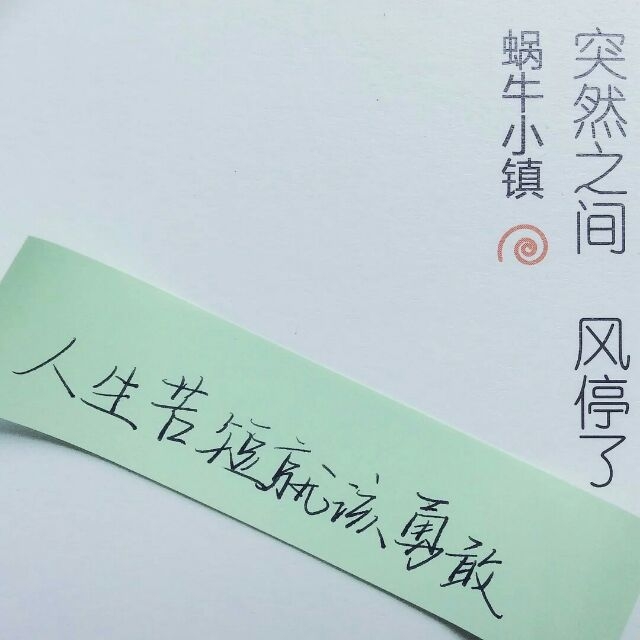 突然之间 风停了
蜗牛小镇
人生苦短就该勇敢